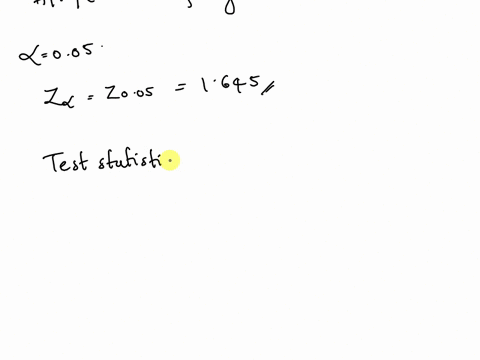 α = 0.05.
Zα = Z0.05 = 1.645
Test statisti